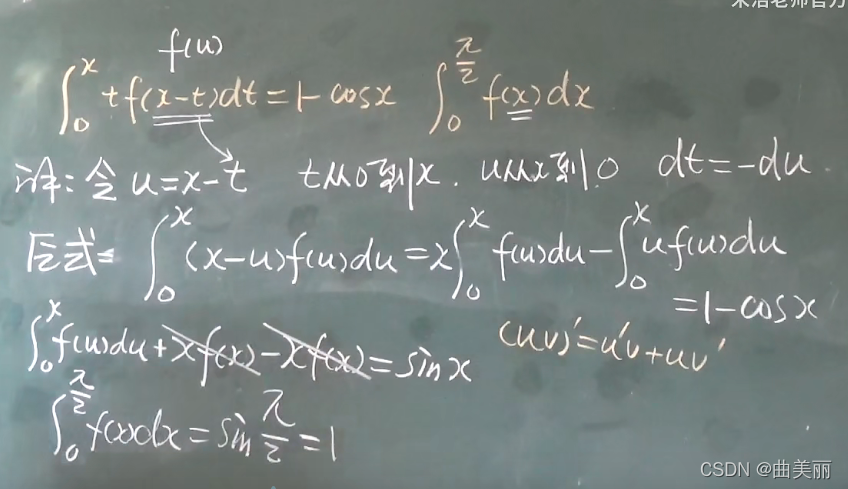 f(u)
∫₀ˣ tf(x-t)dt=1-cosx ∫₀^{π/2} f(x)dx
令u=x-t t从0到x. u从x到0 dt=-du.
∫₀ˣ (x-u)f(u)du=x∫₀ˣ f(u)du-∫₀ˣ uf(u)du
=1-cosx
∫₀ˣ f(u)du+xf(x)-xf(x)=sinx (uv)'=u'v+uv'
∫₀^{π/2} f(x)dx=sin π/2=1
CSDN @曲美丽